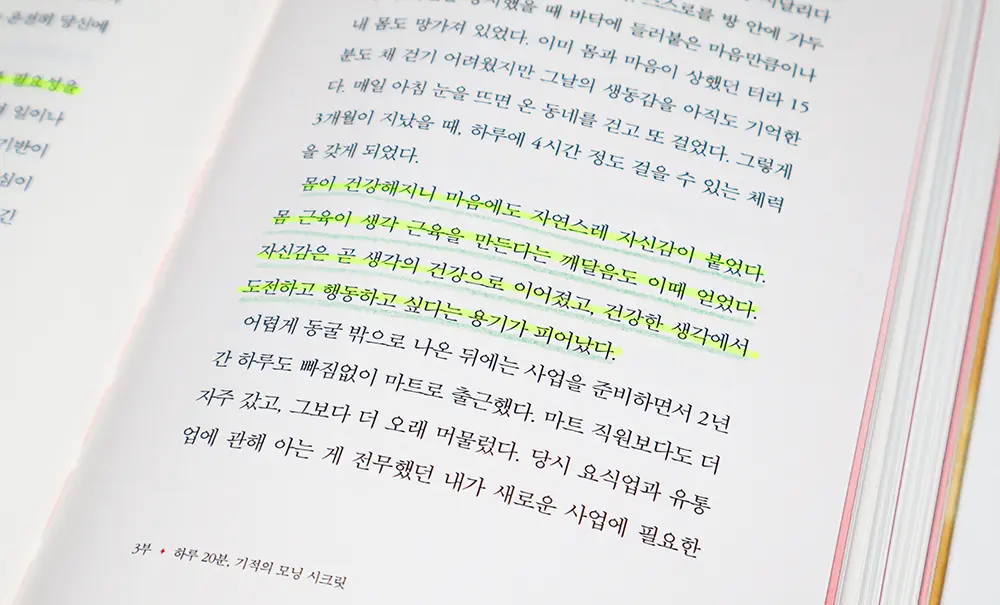 온전히 당신에
필요성을
일이나
기반이
심이
긴
때 바닥에 들러붙은 마음만큼이나
내 몸도 망가져 있었다. 이미 몸과 마음이 상했던 터라 15
분도 채 걷기 어려웠지만 그날의 생동감을 아직도 기억한
다. 매일 아침 눈을 뜨면 온 동네를 걷고 또 걸었다. 그렇게
3개월이 지났을 때, 하루에 4시간 정도 걸을 수 있는 체력
을 갖게 되었다.
몸이 건강해지니 마음에도 자연스레 자신감이 붙었다.
몸 근육이 생각 근육을 만든다는 깨달음도 이때 얻었다.
자신감은 곧 생각의 건강으로 이어졌고, 건강한 생각에서
도전하고 행동하고 싶다는 용기가 피어났다.
어렵게 동굴 밖으로 나온 뒤에는 사업을 준비하면서 2년
간 하루도 빠짐없이 마트로 출근했다. 마트 직원보다도 더
자주 갔고, 그보다 더 오래 머물렀다. 당시 요식업과 유통
업에 관해 아는 게 전무했던 내가 새로운 사업에 필요한
3부 ♦ 하루 20분, 기적의 모닝 시크릿